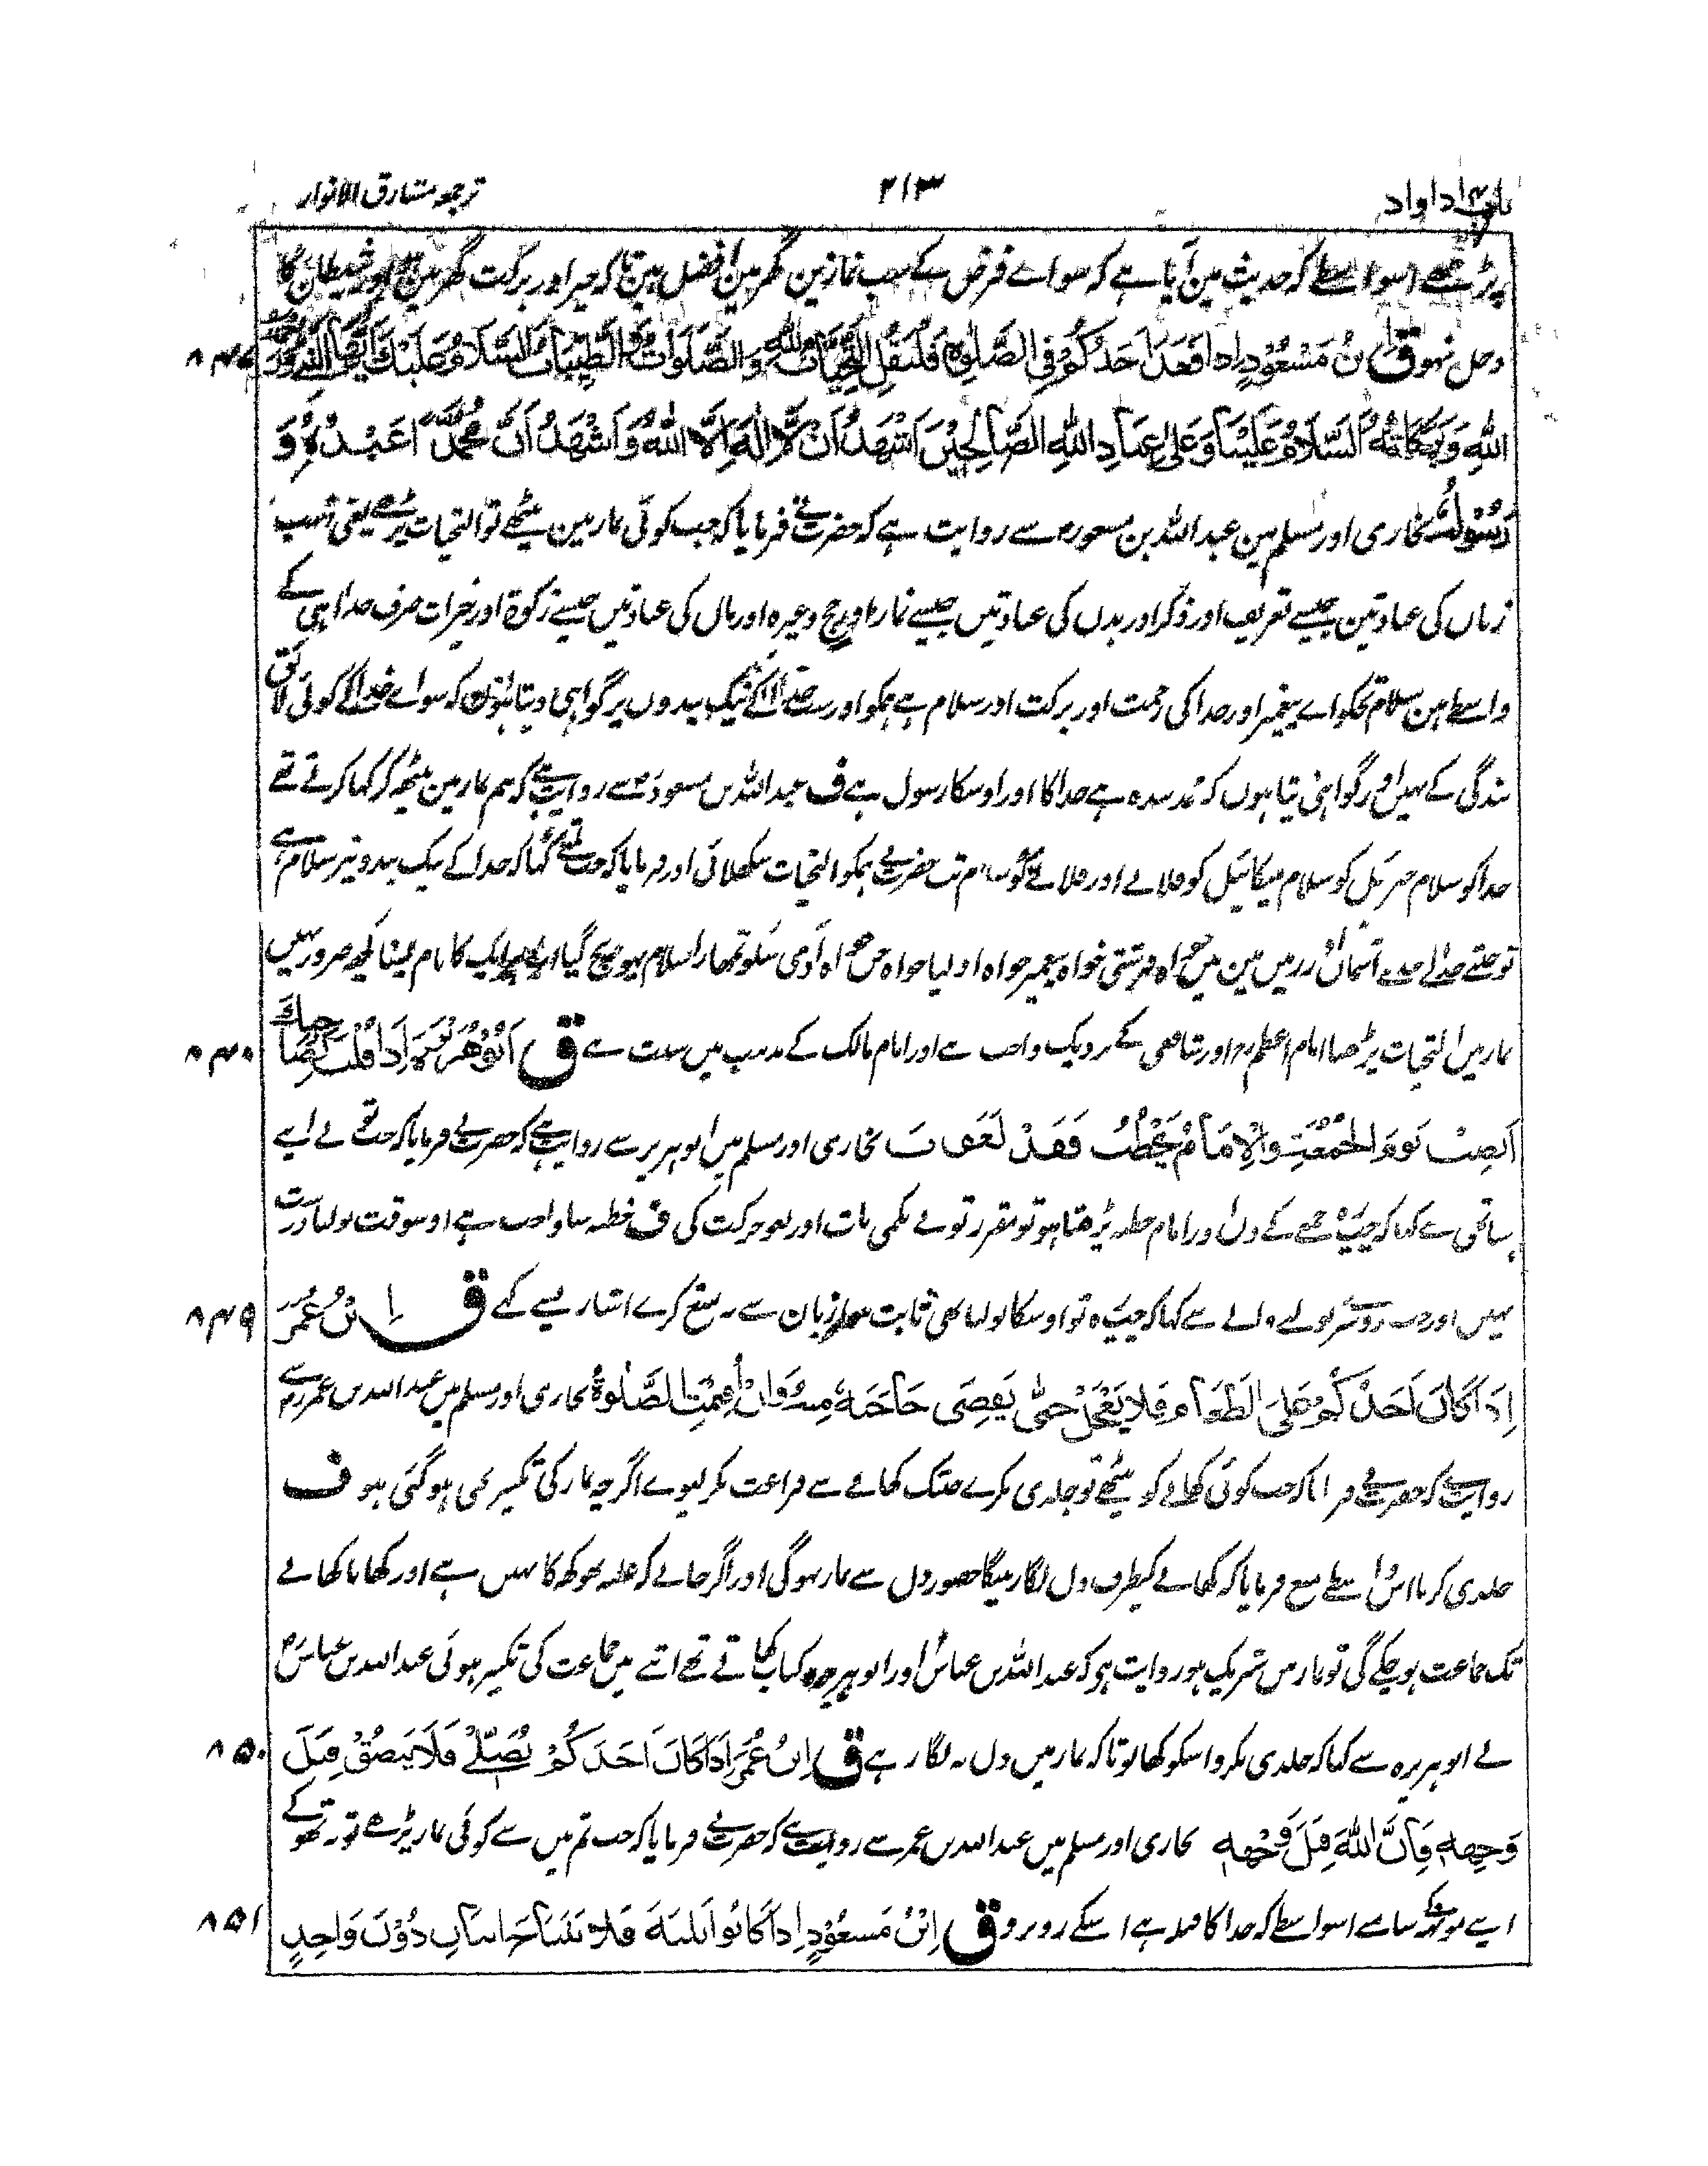 باب ۴ اذا واد ۲۱۳ ترجمہ مشارق الانوار
پڑھے اسواسطے کہ حدیث مین آیا ہے کہ سواے فرض کے سب نمازین گھر مین افضل ہین تاکہ خیر اور برکت گھر مین ہو اور شیطان کا
دخل نہو ق ابْنُ مَسْعُوْدٍ اِذَا قَعَدَ اَحَدُكُمْ فِي الصَّلٰوةِ فَلْيَقُلِ التَّحِيَّاتُ لِلّٰهِ وَالصَّلَوَاتُ وَالطَّيِّبَاتُ السَّلَامُ عَلَيْكَ اَيُّهَا النَّبِيُّ وَرَحْمَةُ
اللّٰهِ وَبَرَكَاتُهُ اَلسَّلَامُ عَلَيْنَا وَعَلٰى عِبَادِ اللّٰهِ الصَّالِحِيْنَ اَشْهَدُ اَنْ لَّا اِلٰهَ اِلَّا اللّٰهُ وَاَشْهَدُ اَنَّ مُحَمَّدًا عَبْدُهُ وَ
رَسُوْلُهُ بخاری اور مسلم مین عبد اللہ بن مسعود سے روایت ہے کہ حضرت نے فرمایا کہ جب کوئی نماز مین بیٹھے تو التحیات پڑھے یعنی سب
زبان کی عبادتین جیسے تعریف اور ذکر اور بدن کی عبادتیں جیسے نماز اور حج وغیرہ اور مال کی عبادتیں جیسے زکوۃ اور خیرات صرف خدا ہی کے
واسطے ہین سلام تجکو اے پیغمبر اور خدا کی رحمت اور برکت اور سلام ہے ہمکو اور سب خدا کے نیک بندوں پر گواہی دیتا ہوں کہ سواے خدا کے کوئی لائق
بندگی کے نہیں اور گواہی دیتا ہوں کہ محمد بندہ ہے خدا کا اور اوسکا رسول ہے ف عبد اللہ بن مسعود سے روایت ہے کہ ہم نماز مین بیٹھ کر کہا کرتے تھے
خدا کو سلام جبرئیل کو سلام میکائیل کو فلانے اور فلانے کو سلام تب حضرت نے ہمکو التحیات سکھلائی اور فرمایا کہ جب تمنے کہا کہ خدا کے نیک بندونپر سلام ہے
تو جتنے خدا کے بندے آسمان اور زمیں مین ہیں خواہ فرشتے خواہ پیغمبر خواہ اولیا خواہ جن خواہ آدمی سبکو تمھارا سلام پہونچ گیا اور ہر ایک کا نام لینا کچھ ضرور نہیں
نماز میں التحیات پڑھنا امام اعظم اور شافعی کے نزدیک واجب ہے اور امام مالک کے مذہب میں سنت ہے ق اَبُوْ هُرَيْرَةَ اِذَا قُلْتَ لِصَاحِبِكَ
اَنْصِتْ يَوْمَ الْجُمُعَةِ وَالْاِمَامُ يَخْطُبُ فَقَدْ لَغَوْتَ بخاری اور مسلم میں ابو ہریرہ سے روایت ہے کہ حضرت نے فرمایا کہ جب تو نے اپنے
ساتھی سے کہا کہ چپ رہ جمعے کے دن اور امام خطبہ پڑھتا ہو تو مقرر تو نے نکمی بات اور لغو حرکت کی ف خطبہ سننا واجب ہے اوسوقت بولنا درست
نہیں اور جب دوسرے بولنے والے سے کہا کہ چپ رہ تو اوسکا بولنا بھی ثابت ہوا زبان سے نہ منع کرے اشارے سے کہے ق ابْنُ عُمَرَ
اِذَا كَانَ اَحَدُكُمْ عَلَى الطَّعَامِ فَلَا يَعْجَلْ حَتّٰى يَقْضِيَ حَاجَتَهُ مِنْهُ وَاِنْ اُقِيْمَتِ الصَّلٰوةُ بخاری اور مسلم میں عبد اللہ بن عمر سے
روایت ہے کہ حضرت نے فرمایا کہ جب کوئی کھانے کو بیٹھے تو جلدی نکرے جبتک کھانے سے فراغت نکر لیوے اگرچہ نماز کی تکبیر بھی ہو گئی ہو ف
جلدی کرنا اس واسطے منع فرمایا کہ کھانے کیطرف دل لگا رہیگا حضور دل سے نماز نہوگی اور اگر جانے کہ غلبہ بھوکھ کا نہیں ہے اور کھانا کھانے
تک جماعت ہو چکے گی تو نماز میں شریک ہو روایت ہو کہ عبد اللہ بن عباس اور ابو ہریرہ کباب کھاتے تھے اتنے میں جماعت کی تکبیر ہوئی عبد اللہ بن عباس
نے ابو ہریرہ سے کہا کہ جلدی نکرو اسکو کھا لو تاکہ نماز میں دل نہ لگا رہے ق ابْنُ عُمَرَ اِذَا كَانَ اَحَدُكُمْ يُصَلِّيْ فَلَا يَبْصُقْ قِبَلَ
وَجْهِهٖ فَاِنَّ اللّٰهَ قِبَلَ وَجْهِهٖ بخاری اور مسلم میں عبد اللہ بن عمر سے روایت ہے کہ حضرت نے فرمایا کہ جب تم میں سے کوئی نماز پڑھے تو نہ تھوکے
اپنے مونھ کے سامنے اسواسطے کہ خدا کا قبلہ ہے اسکے روبرو ق ابْنُ مَسْعُوْدٍ اِذَا كَانُوْا ثَلٰثَةً فَلَا يَتَنَاجٰى اثْنَانِ دُوْنَ وَاحِدٍ
۸۴۸
۸۴۹
۸۵۰
۸۵۱